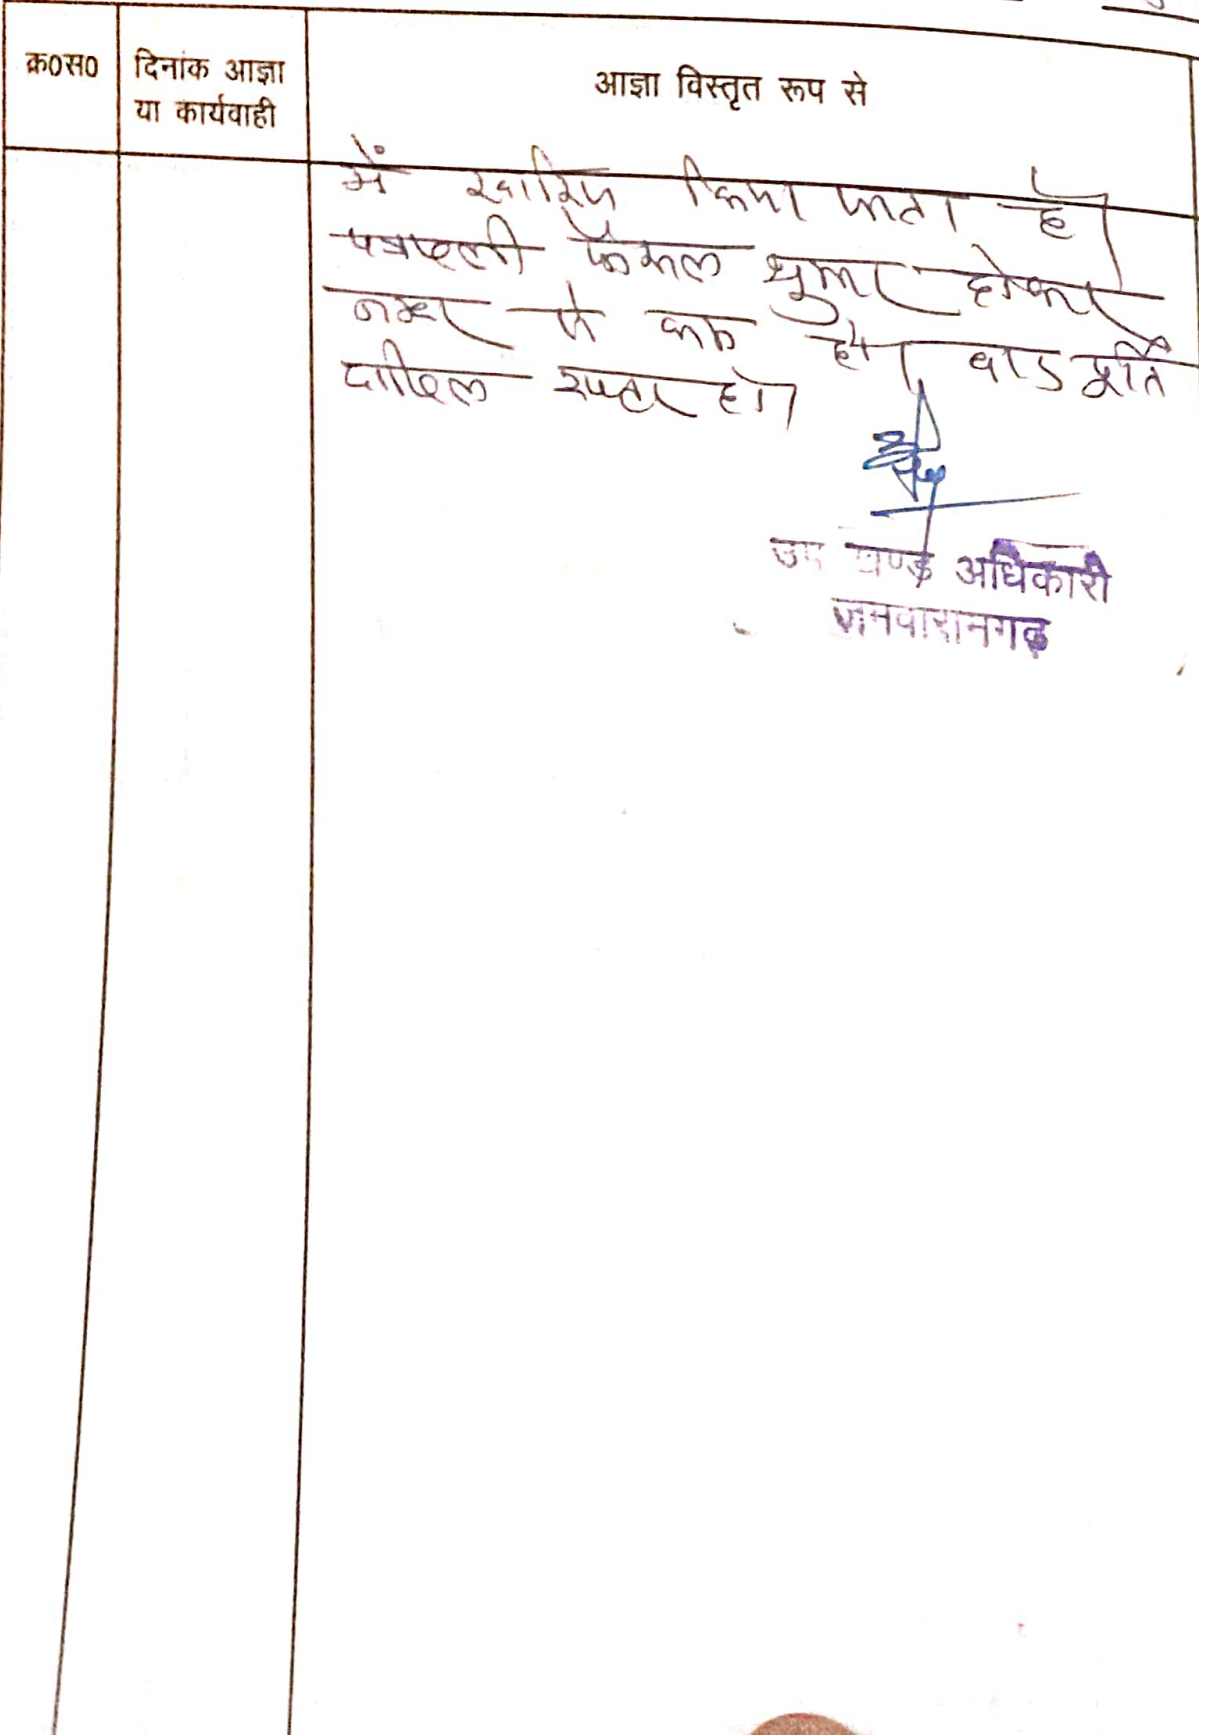 क्र0स0
दिनांक आज्ञा
या कार्यवाही
आज्ञा विस्तृत रूप से
में खारिज किया जाता है।
पत्रावली फैसल शुमार होकर
नम्बर से कम हो। बाद पूर्ति
दाखिल दफ्तर हो।
उप खण्ड अधिकारी
जमवारामगढ़